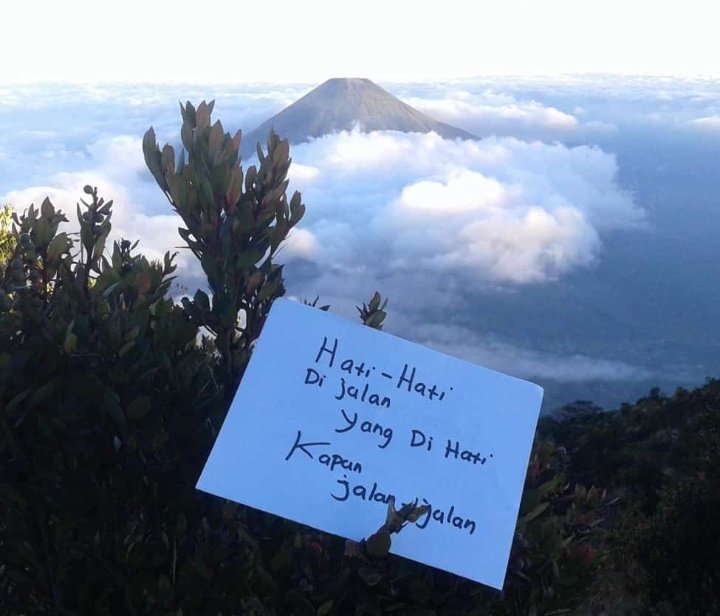 Hati-Hati
Di jalan
Yang Di Hati
Kapan
jalan-jalan